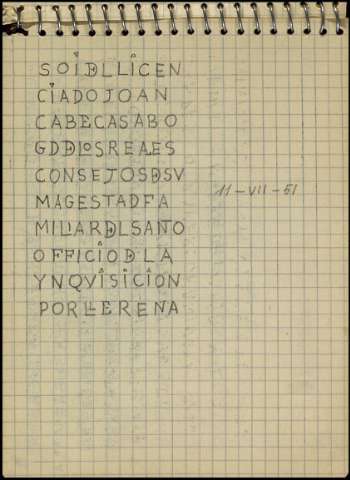 SOIDLLICEN
CIADOJOAN
CABECASABO
GDDLOSREALES
CONSEJOSDSV
MAGESTADFA
MILIARDLSANTO
OFFICIODLA
YNQVISICION
PORLLERENA
11-VII-51